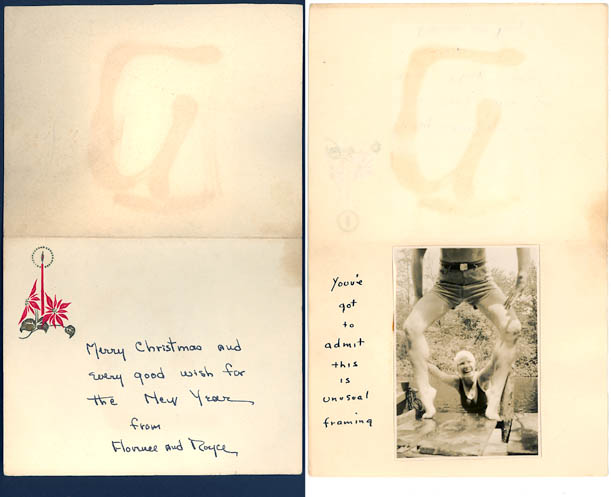 Merry Christmas and
every good wish for
the New Year
from
Florence and Royce
You've
got
to
admit
this
is
unusual
framing